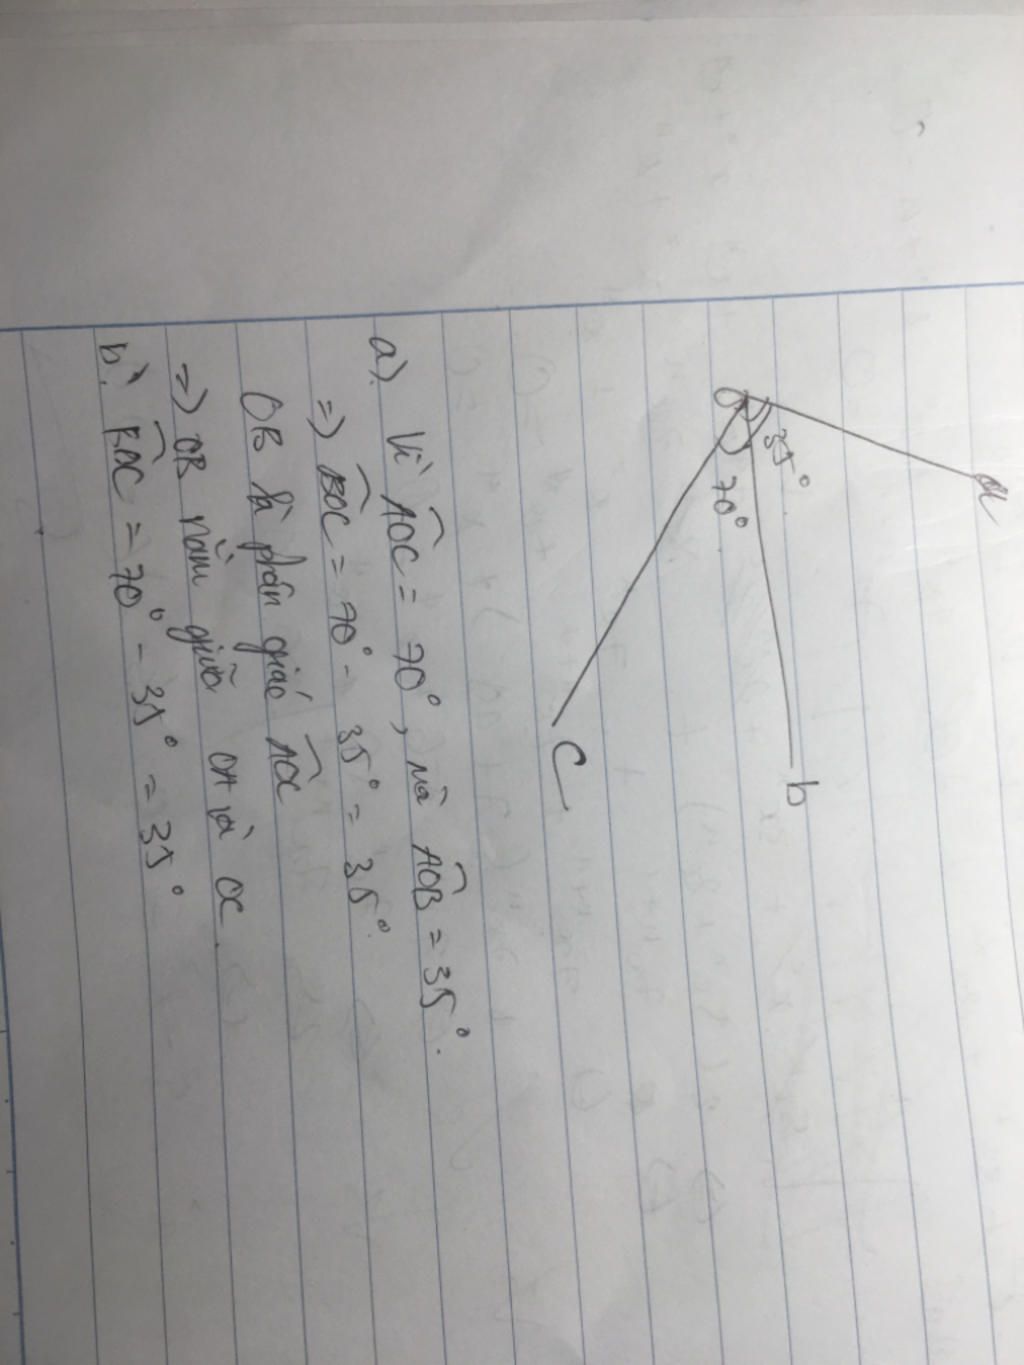 a
35°
O
70°
b
C
a). Vì AOC = 70°, mà AOB = 35°.
=> BOC = 70° - 35° = 35°.
OB là phân giác AOC
=> OB nằm giữa OA và OC.
b). BOC = 70° - 35° = 35°